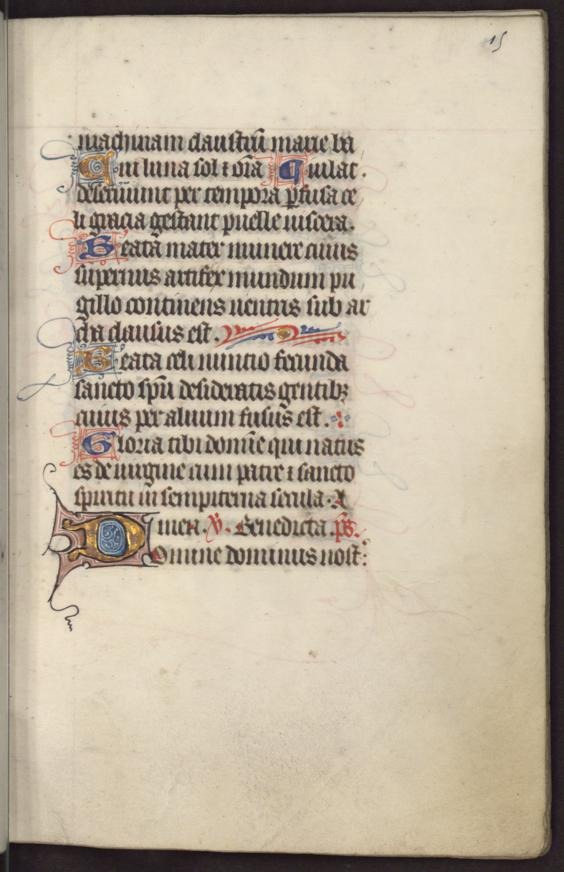 15
machinam claustrū marie ba
iulat. Cui luna sol ⁊ om̄ia
deseruiunt per tempora ꝑfusa ce
li gracia gestant puelle uiscera.
Beata mater munere cuius
supernus artifex mundum pu
gillo continens uentris sub ar
cha clausus est.
Beata celi nuncio fecunda
sancto spū desideratis gentibꝫ
cuius per aluum fusus est.
Gloria tibi domīe qui natus
es de uirgine cum patre ⁊ sancto
spiritu in sempiterna secula. A
men. ℣. Benedicta. p̄s.
Domine dominus nost̄: